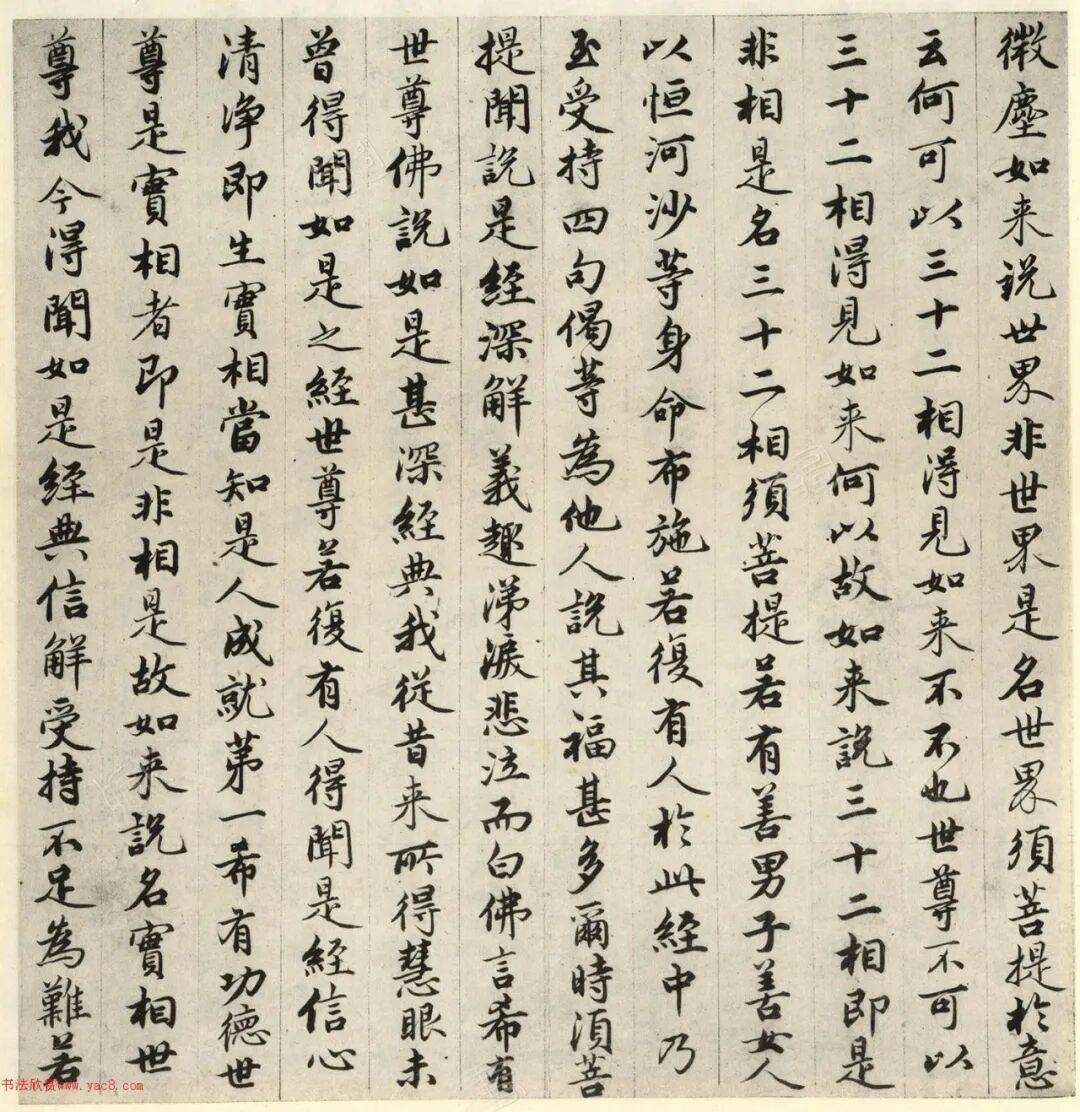 微塵如来說世界非世界是名世界須菩提於意
云何可以三十二相得見如来不不也世尊不可以
三十二相得見如来何以故如来說三十二相即是
非相是名三十二相須菩提若有善男子善女人
以恒河沙等身命布施若復有人於此經中乃
至受持四句偈等為他人說其福甚多爾時須菩
提聞說是經深解義趣涕淚悲泣而白佛言希有
世尊佛說如是甚深經典我從昔来所得慧眼未
曾得聞如是之經世尊若復有人得聞是經信心
清淨即生實相當知是人成就第一希有功德世
尊是實相者即是非相是故如来說名實相世
尊我今得聞如是經典信解受持不足為難若
书法欣赏www.yac8.com